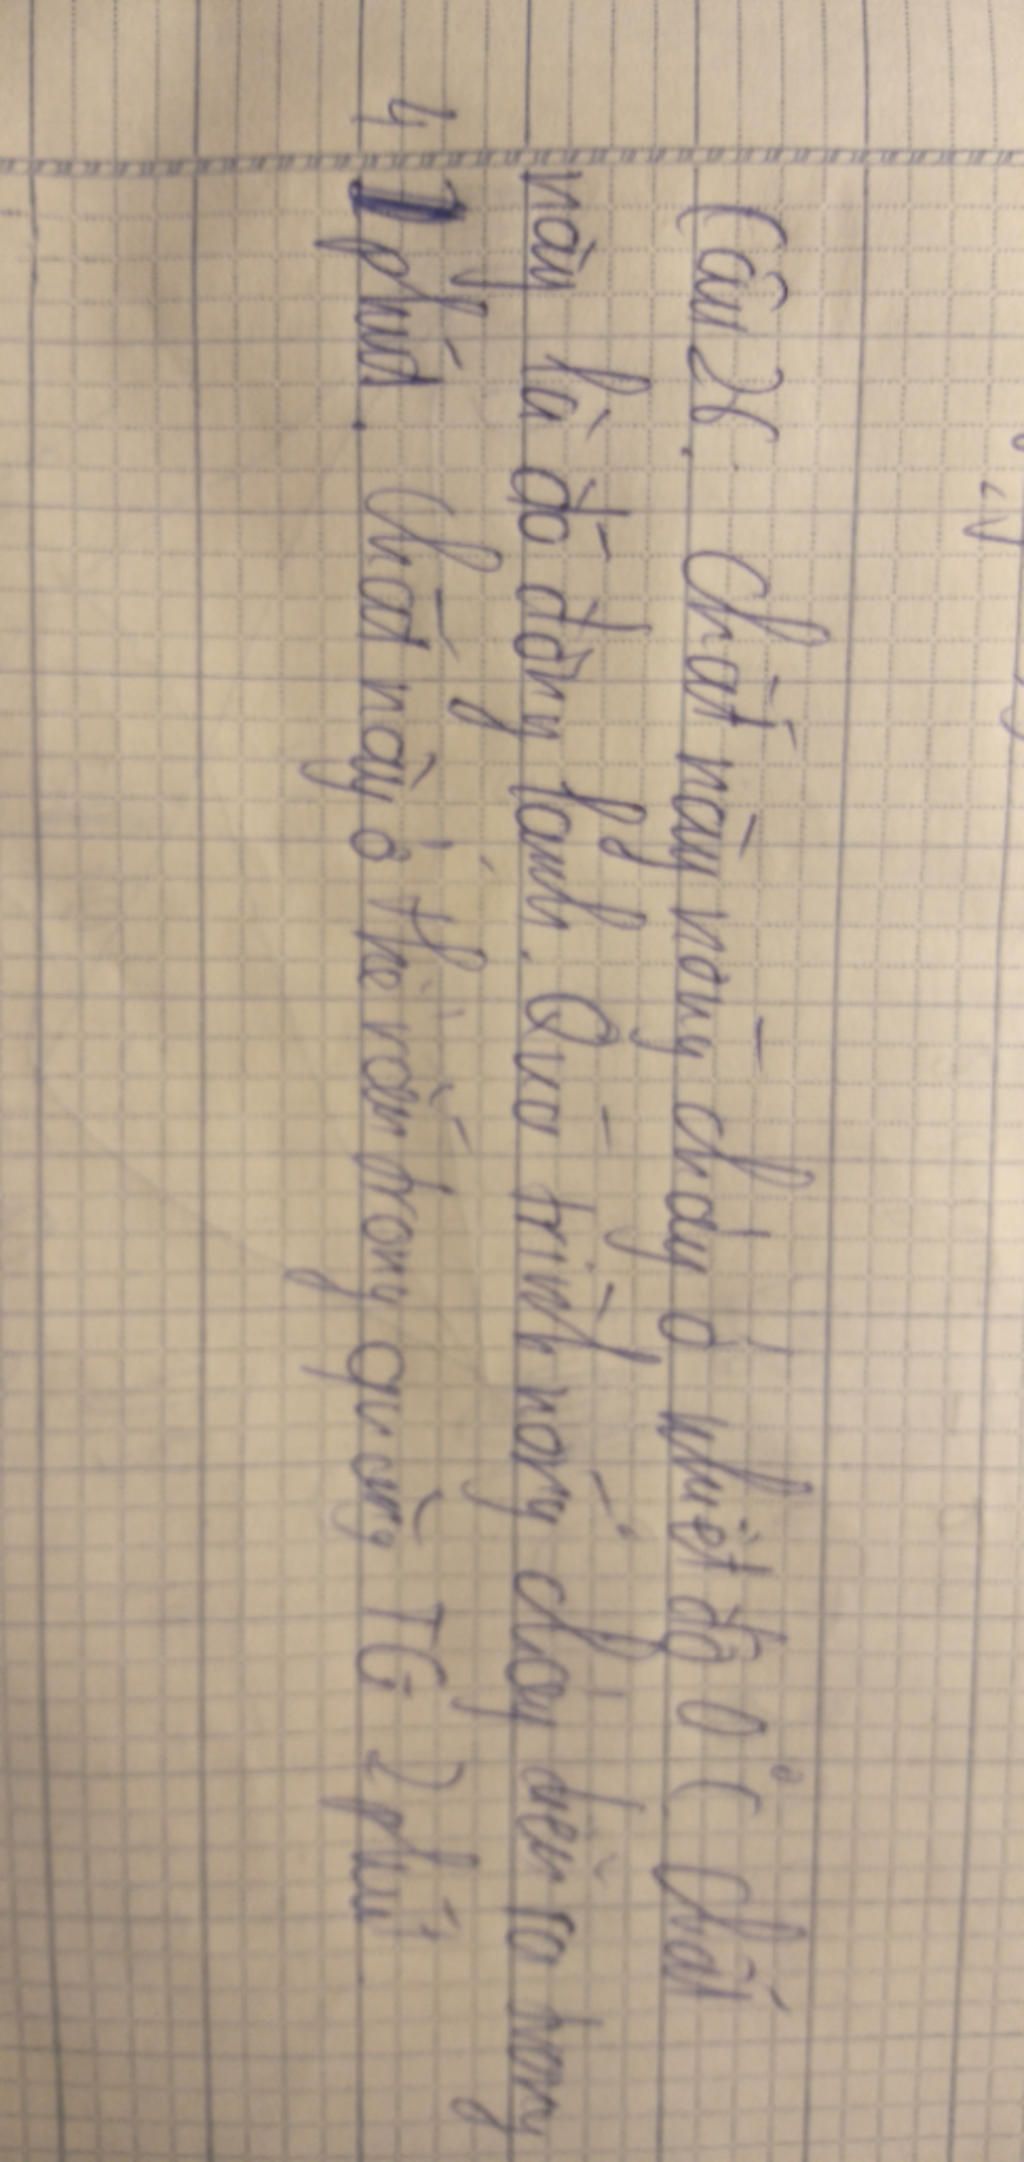 Câu 26. Chất này nóng chảy ở nhiệt độ 0°C Chất
này là đá đông lạnh. Quá trình nóng chảy diễn ra trong
4 phút. Chất này ở thể rắn trong quãng TG 2 phút